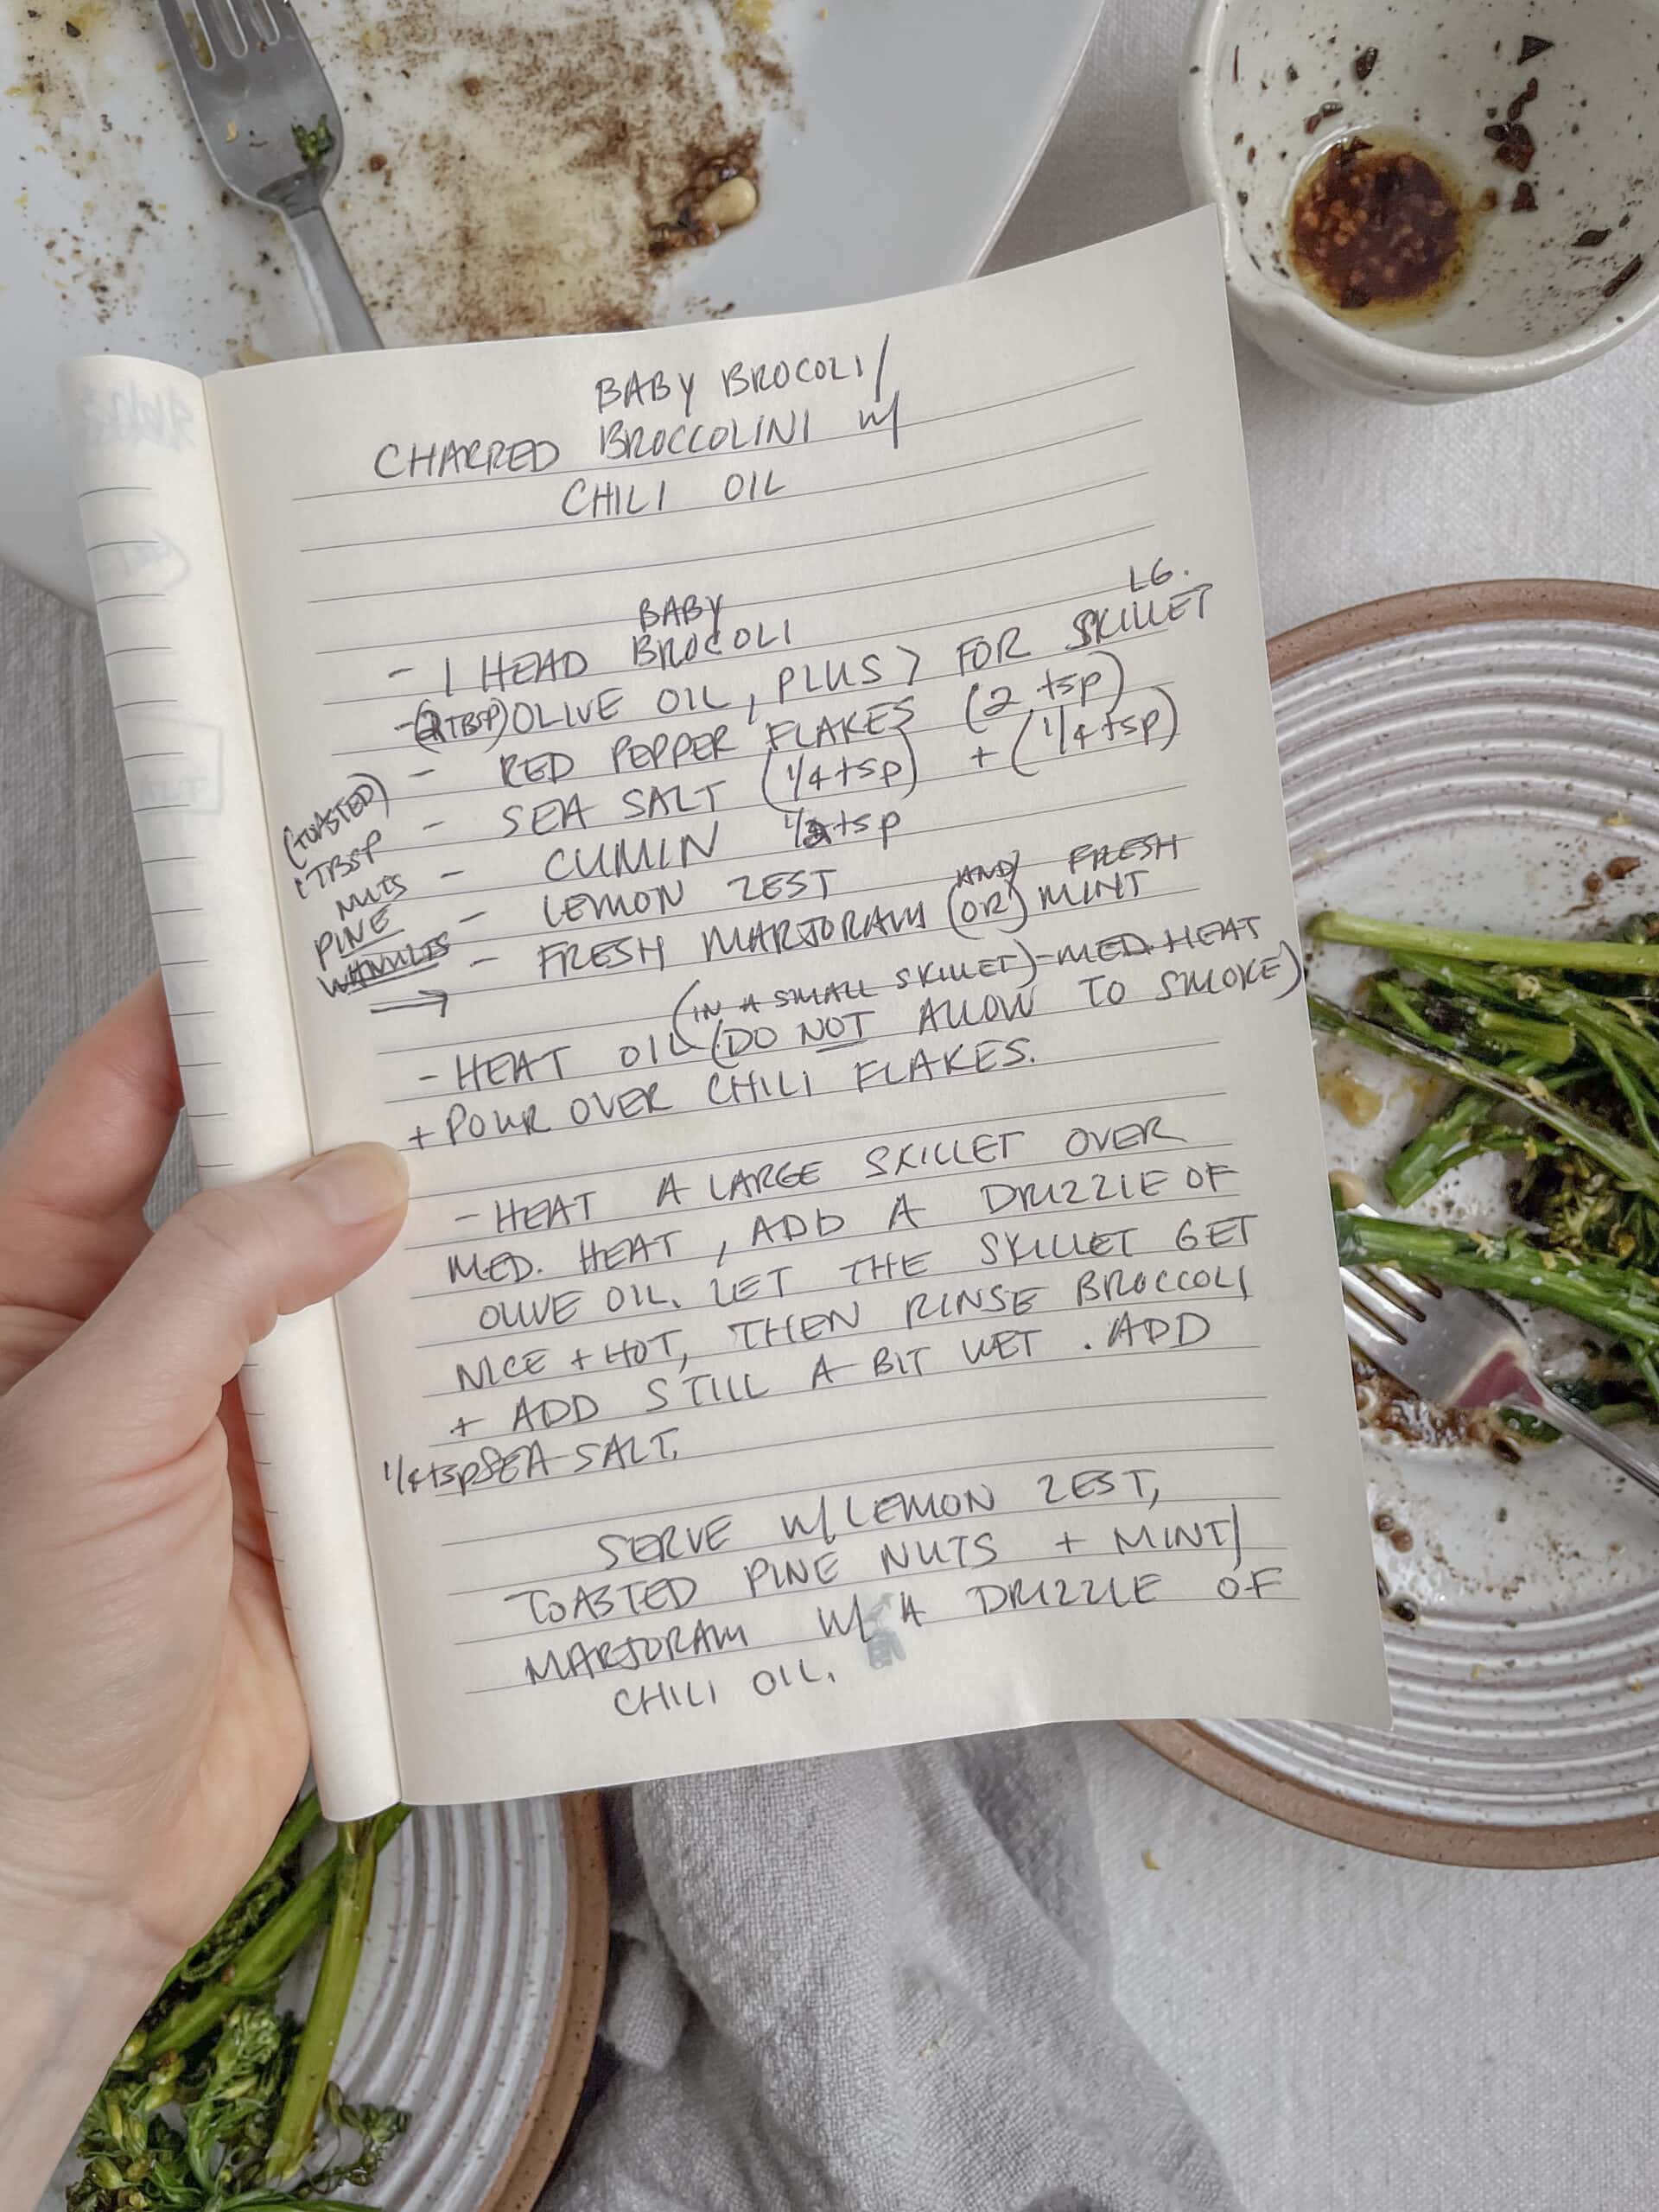 BABY BROCOLI/
CHARRED BROCCOLINI w/
CHILI OIL
BABY
- 1 HEAD BROCOLI
LG.
-(2TBSP) OLIVE OIL, PLUS > FOR SKILLET
- RED PEPPER FLAKES (2 tsp)
- SEA SALT (1/4 tsp) + (1/4 tsp)
- CUMIN 1/2 tsp
- LEMON ZEST
AND FRESH
- FRESH MARJORAM (OR) MINT
(TOASTED)
1 TBSP
NUTS
PINE
WALNUTS
→
(IN A SMALL SKILLET) - MED. HEAT
- HEAT OIL (DO NOT ALLOW TO SMOKE)
+ POUR OVER CHILI FLAKES.
- HEAT A LARGE SKILLET OVER
MED. HEAT, ADD A DRIZZLE OF
OLIVE OIL. LET THE SKILLET GET
NICE + HOT, THEN RINSE BROCCOLI
+ ADD STILL A BIT WET. ADD
1/4 tsp SEA SALT.
SERVE W/ LEMON ZEST,
TOASTED PINE NUTS + MINT/
MARJORAM W/ A DRIZZLE OF
CHILI OIL.